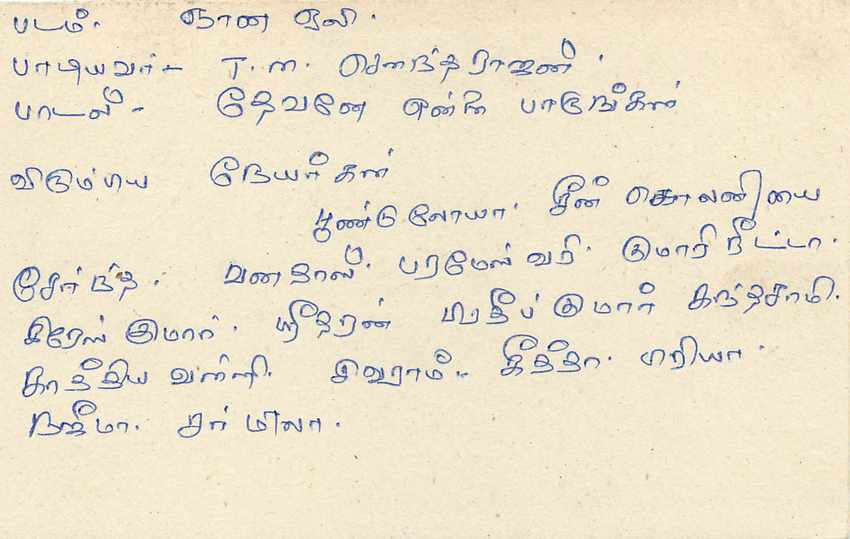 படம். ஞான ஒலி.
பாடியவர் - T.M. சௌந்தராஜன்.
பாடல் - தேவனே என்னை பாருங்கள்
விரும்பிய நேயர்கள்
பூண்டுலோயா. சீன் கொலனியை
சேர்ந்த. வனதாஸ். பரமேஸ்வரி. குமாரி ரீட்டா.
கிரேஸ் குமார். ஸ்ரீதரன் பிரதீப் குமார் கந்தசாமி.
காத்திய வள்ளி. சிவராம். கீத்தா. மரியா.
நஜீமா. சர்மிலா.